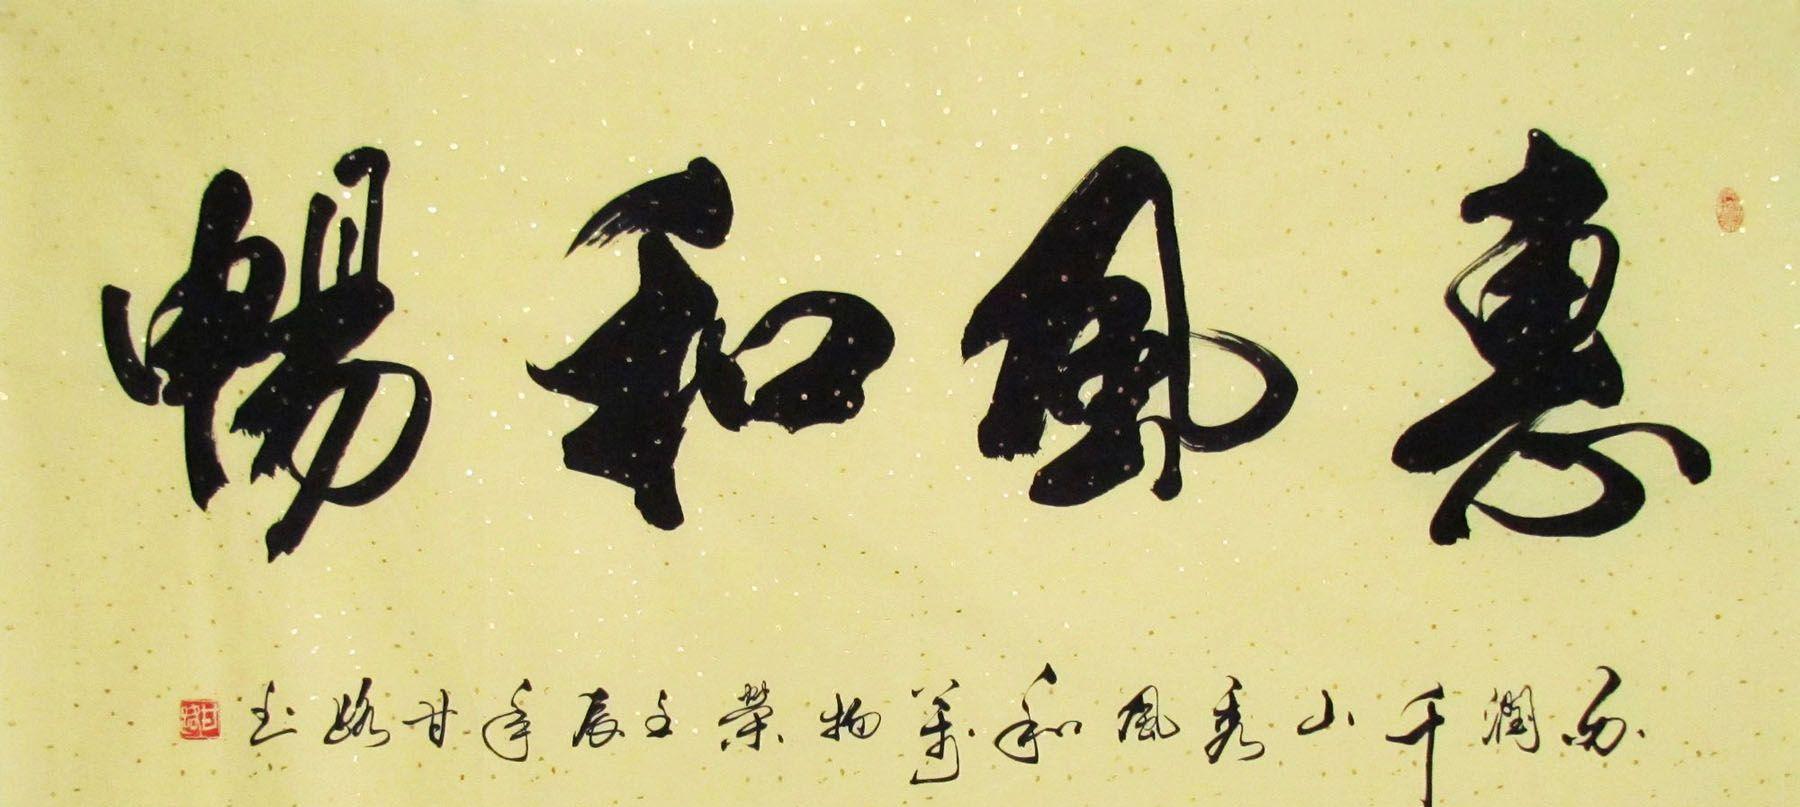 惠風和暢
雨潤千山秀風和萬物榮壬辰年甘路書